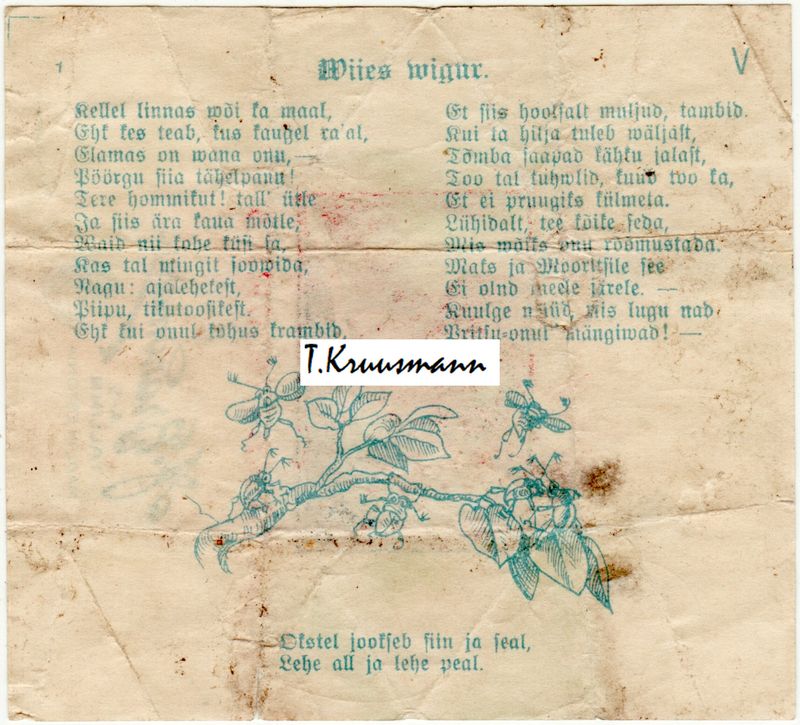 1
Wiies wigur.
V
Kellel linnas wõi ka maal,
Ehk kes teab, kus kaugel ra'al,
Elamas on wana onu, —
Pöörgu siia tähelpanu!
Tere hommikut! tall' ütle
Ja siis ära kaua mõtle,
Waid nii kohe küsi sa,
Kas tal mingit soowida,
Nagu: ajalehekest,
Piipu, tikutoosikest.
Ehk kui onul kõhus krambid,
Et siis hoolsalt muljud, tambid.
Kui ta hilja tuleb wäljast,
Tõmba saapad kähku jalast,
Too tal tuhwlid, kuub too ka,
Et ei pruugiks külmeta.
Lühidalt, tee kõike seda,
Mis wõiks onu rõõmustada.
Maks ja Mooritsile see
Ei olnd meele järele. —
Kuulge nüüd, mis lugu nad
Pritsu-onul mängiwad! —
T.Kruusmann
Okstel jookseb siin ja seal,
Lehe all ja lehe peal.